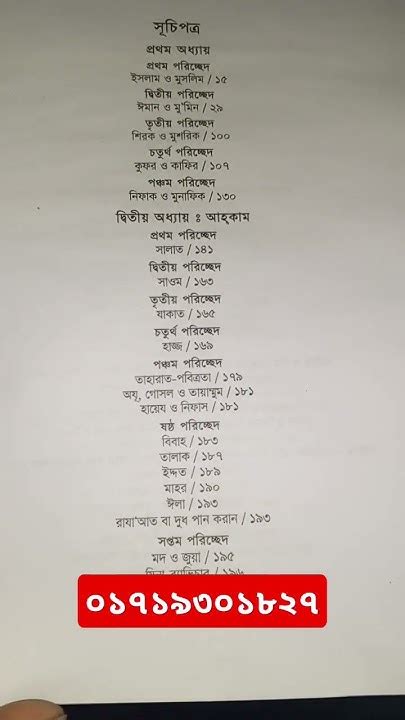 সূচিপত্র
প্রথম অধ্যায়
প্রথম পরিচ্ছেদ
ইসলাম ও মুসলিম / ১৫
দ্বিতীয় পরিচ্ছেদ
ঈমান ও মু'মিন / ২৯
তৃতীয় পরিচ্ছেদ
শিরক ও মুশরিক / ১০০
চতুর্থ পরিচ্ছেদ
কুফর ও কাফির / ১০৭
পঞ্চম পরিচ্ছেদ
নিফাক ও মুনাফিক / ১৩০
দ্বিতীয় অধ্যায় ঃ আহ্কাম
প্রথম পরিচ্ছেদ
সালাত / ১৪১
দ্বিতীয় পরিচ্ছেদ
সাওম / ১৬৩
তৃতীয় পরিচ্ছেদ
যাকাত / ১৬৫
চতুর্থ পরিচ্ছেদ
হাজ্জ / ১৬৯
পঞ্চম পরিচ্ছেদ
তাহারাত-পবিত্রতা / ১৭৯
অযূ, গোসল ও তায়াম্মুম / ১৮১
হায়েয ও নিফাস / ১৮১
ষষ্ঠ পরিচ্ছেদ
বিবাহ / ১৮৩
তালাক / ১৮৭
ইদ্দত / ১৮৯
মাহর / ১৯০
ঈলা / ১৯৩
রাযা'আত বা দুধ পান করান / ১৯৩
সপ্তম পরিচ্ছেদ
মদ ও জুয়া / ১৯৫
০১৭১৯৩০১৮২৭